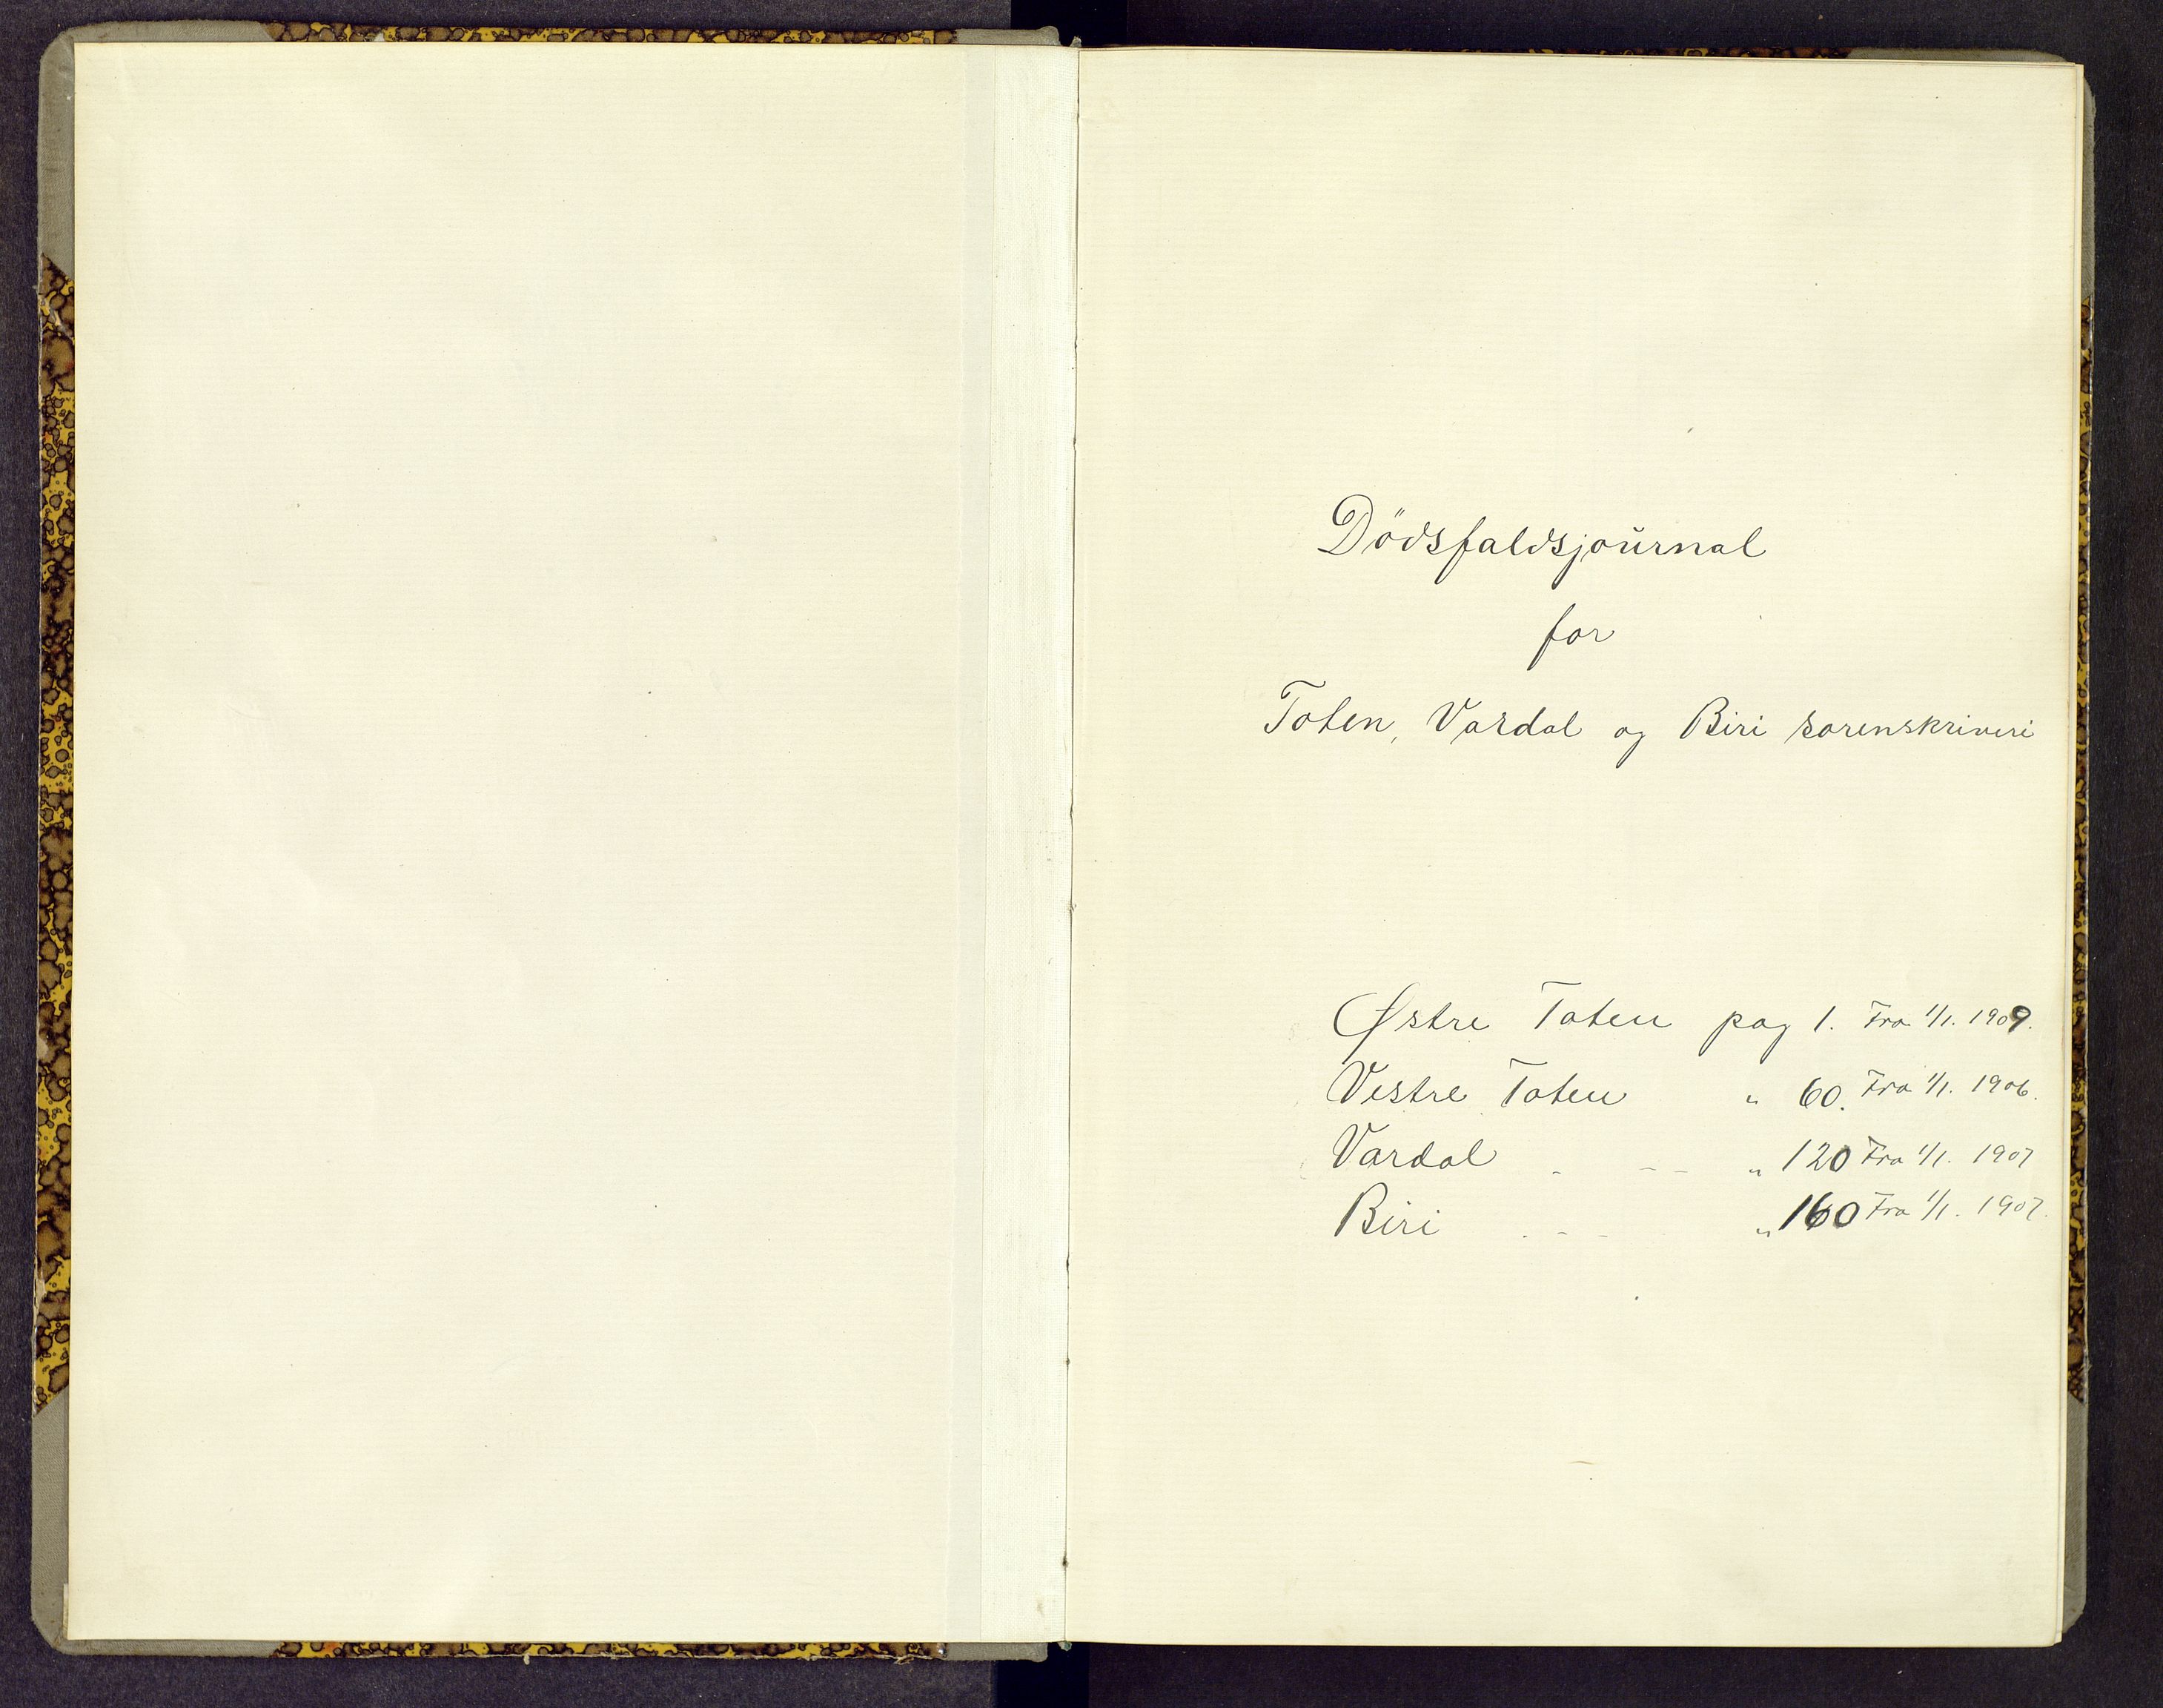 Dödsfaldsjournal
for
Toten, Vardal og Biri sorenskriveri
Østre Toten pag 1. Fra 1/1. 1909.
Vestre Toten " 60. Fra 1/1. 1906.
Vardal . - - " 120 Fra 1/1. 1907
Biri . - - " 160 Fra 1/1. 1907.